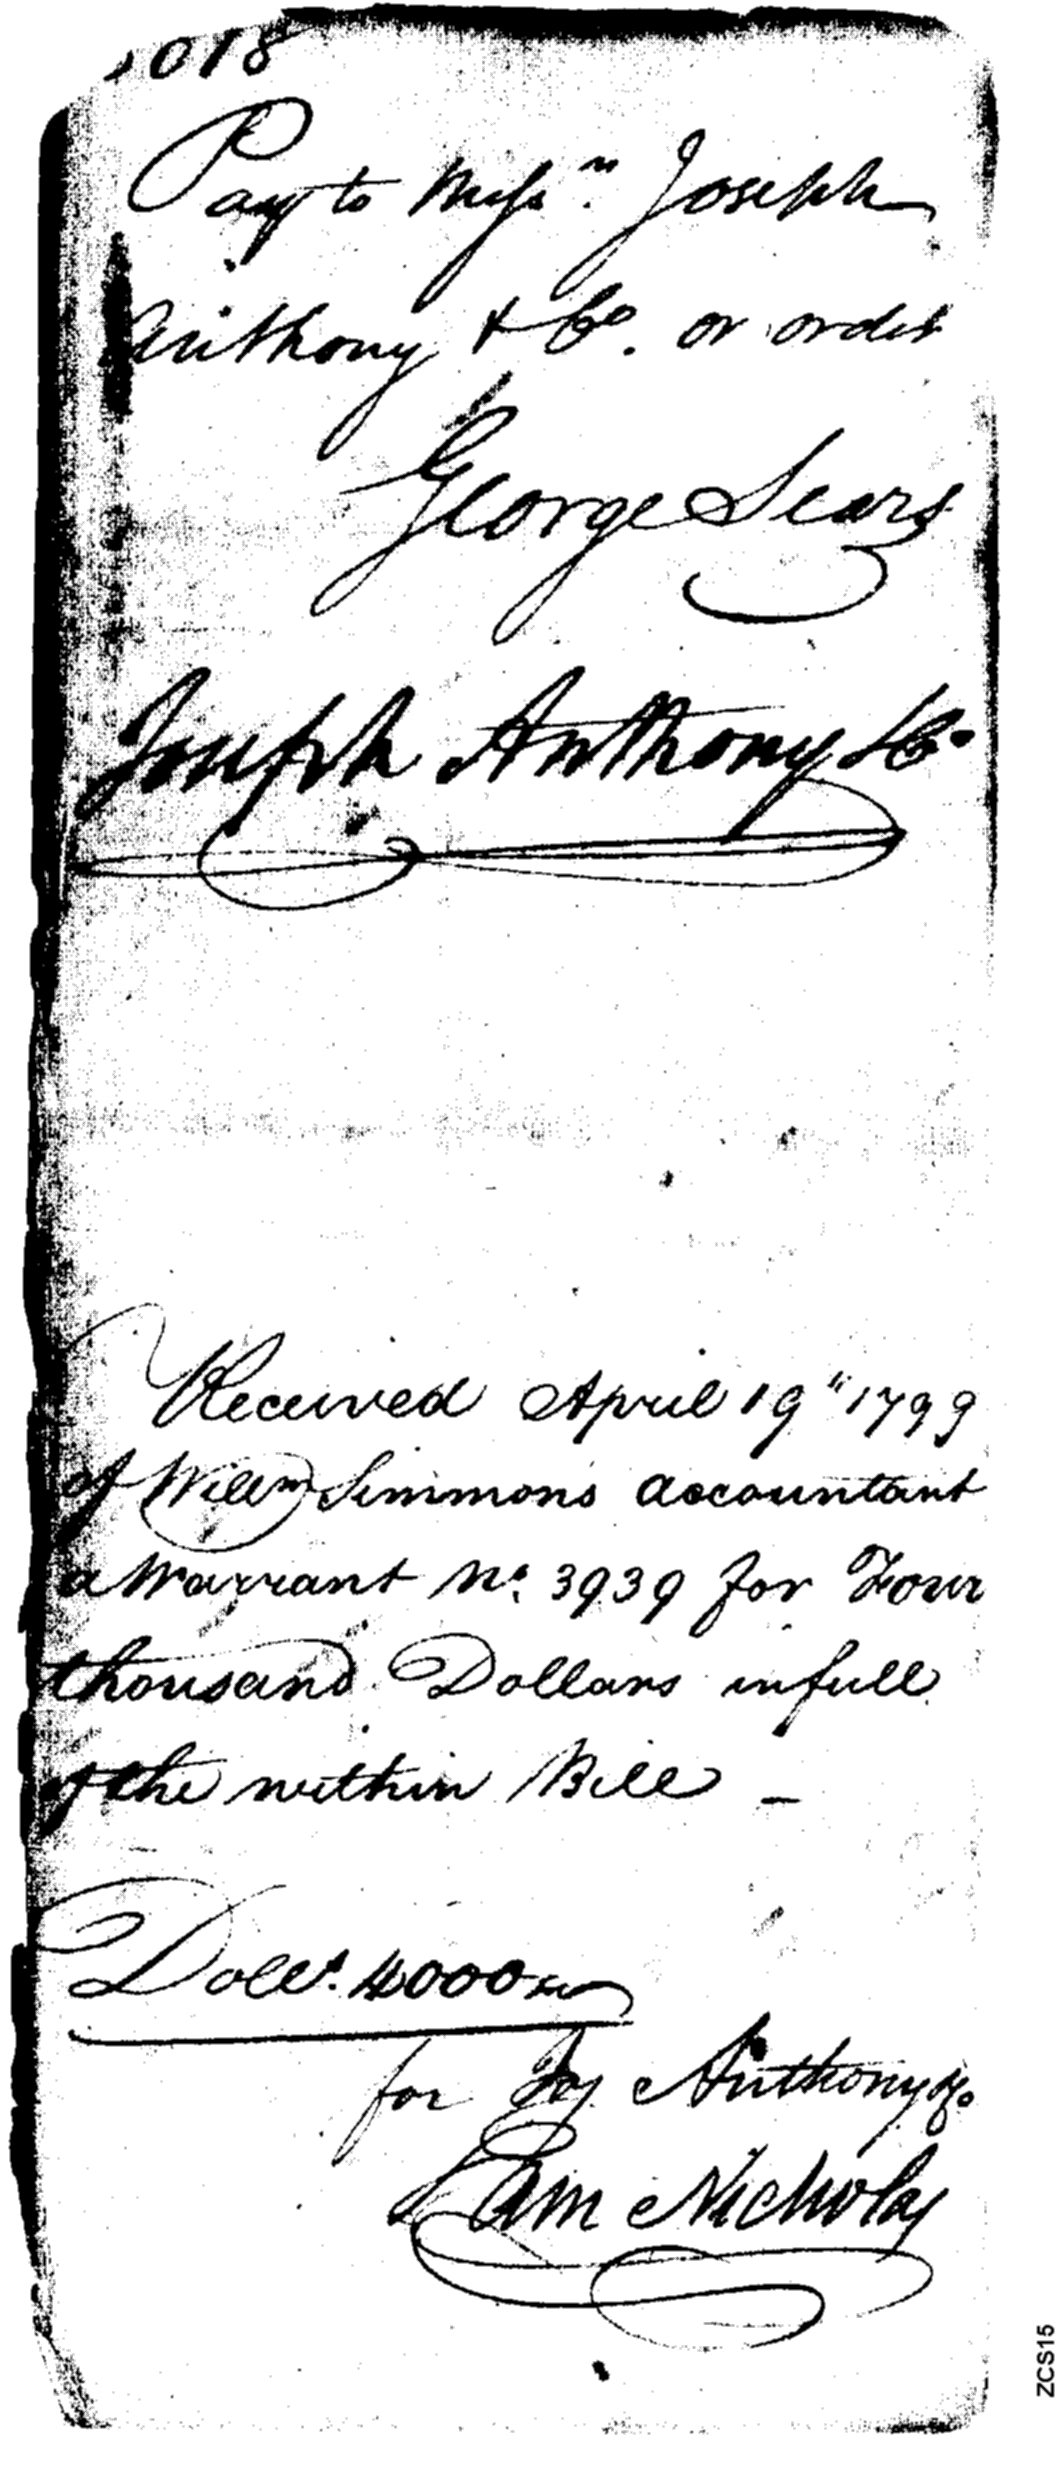 1018
Pay to Messrs. Joseph
Anthony & Co. or order
George Sears
Joseph Anthony & Co.
Received April 19th 1799
of Willm Simmons accountant
a Warrant No. 3939 for Four
thousand Dollars in full
of the within Bill –
Dolls. 4000
for Jos Anthony & Co.
Sam Nicholas
ZCS15